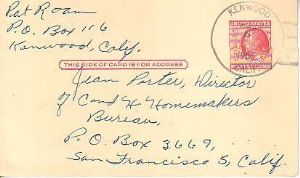 Pat Roan
P.O. Box 116
Kenwood, Calif.
KENWOOD
THIS SIDE OF CARD IS FOR ADDRESS
Jean Porter, Director
of C and H Homemakers
Bureau,
P. O. Box 3669,
San Francisco 5, Calif.